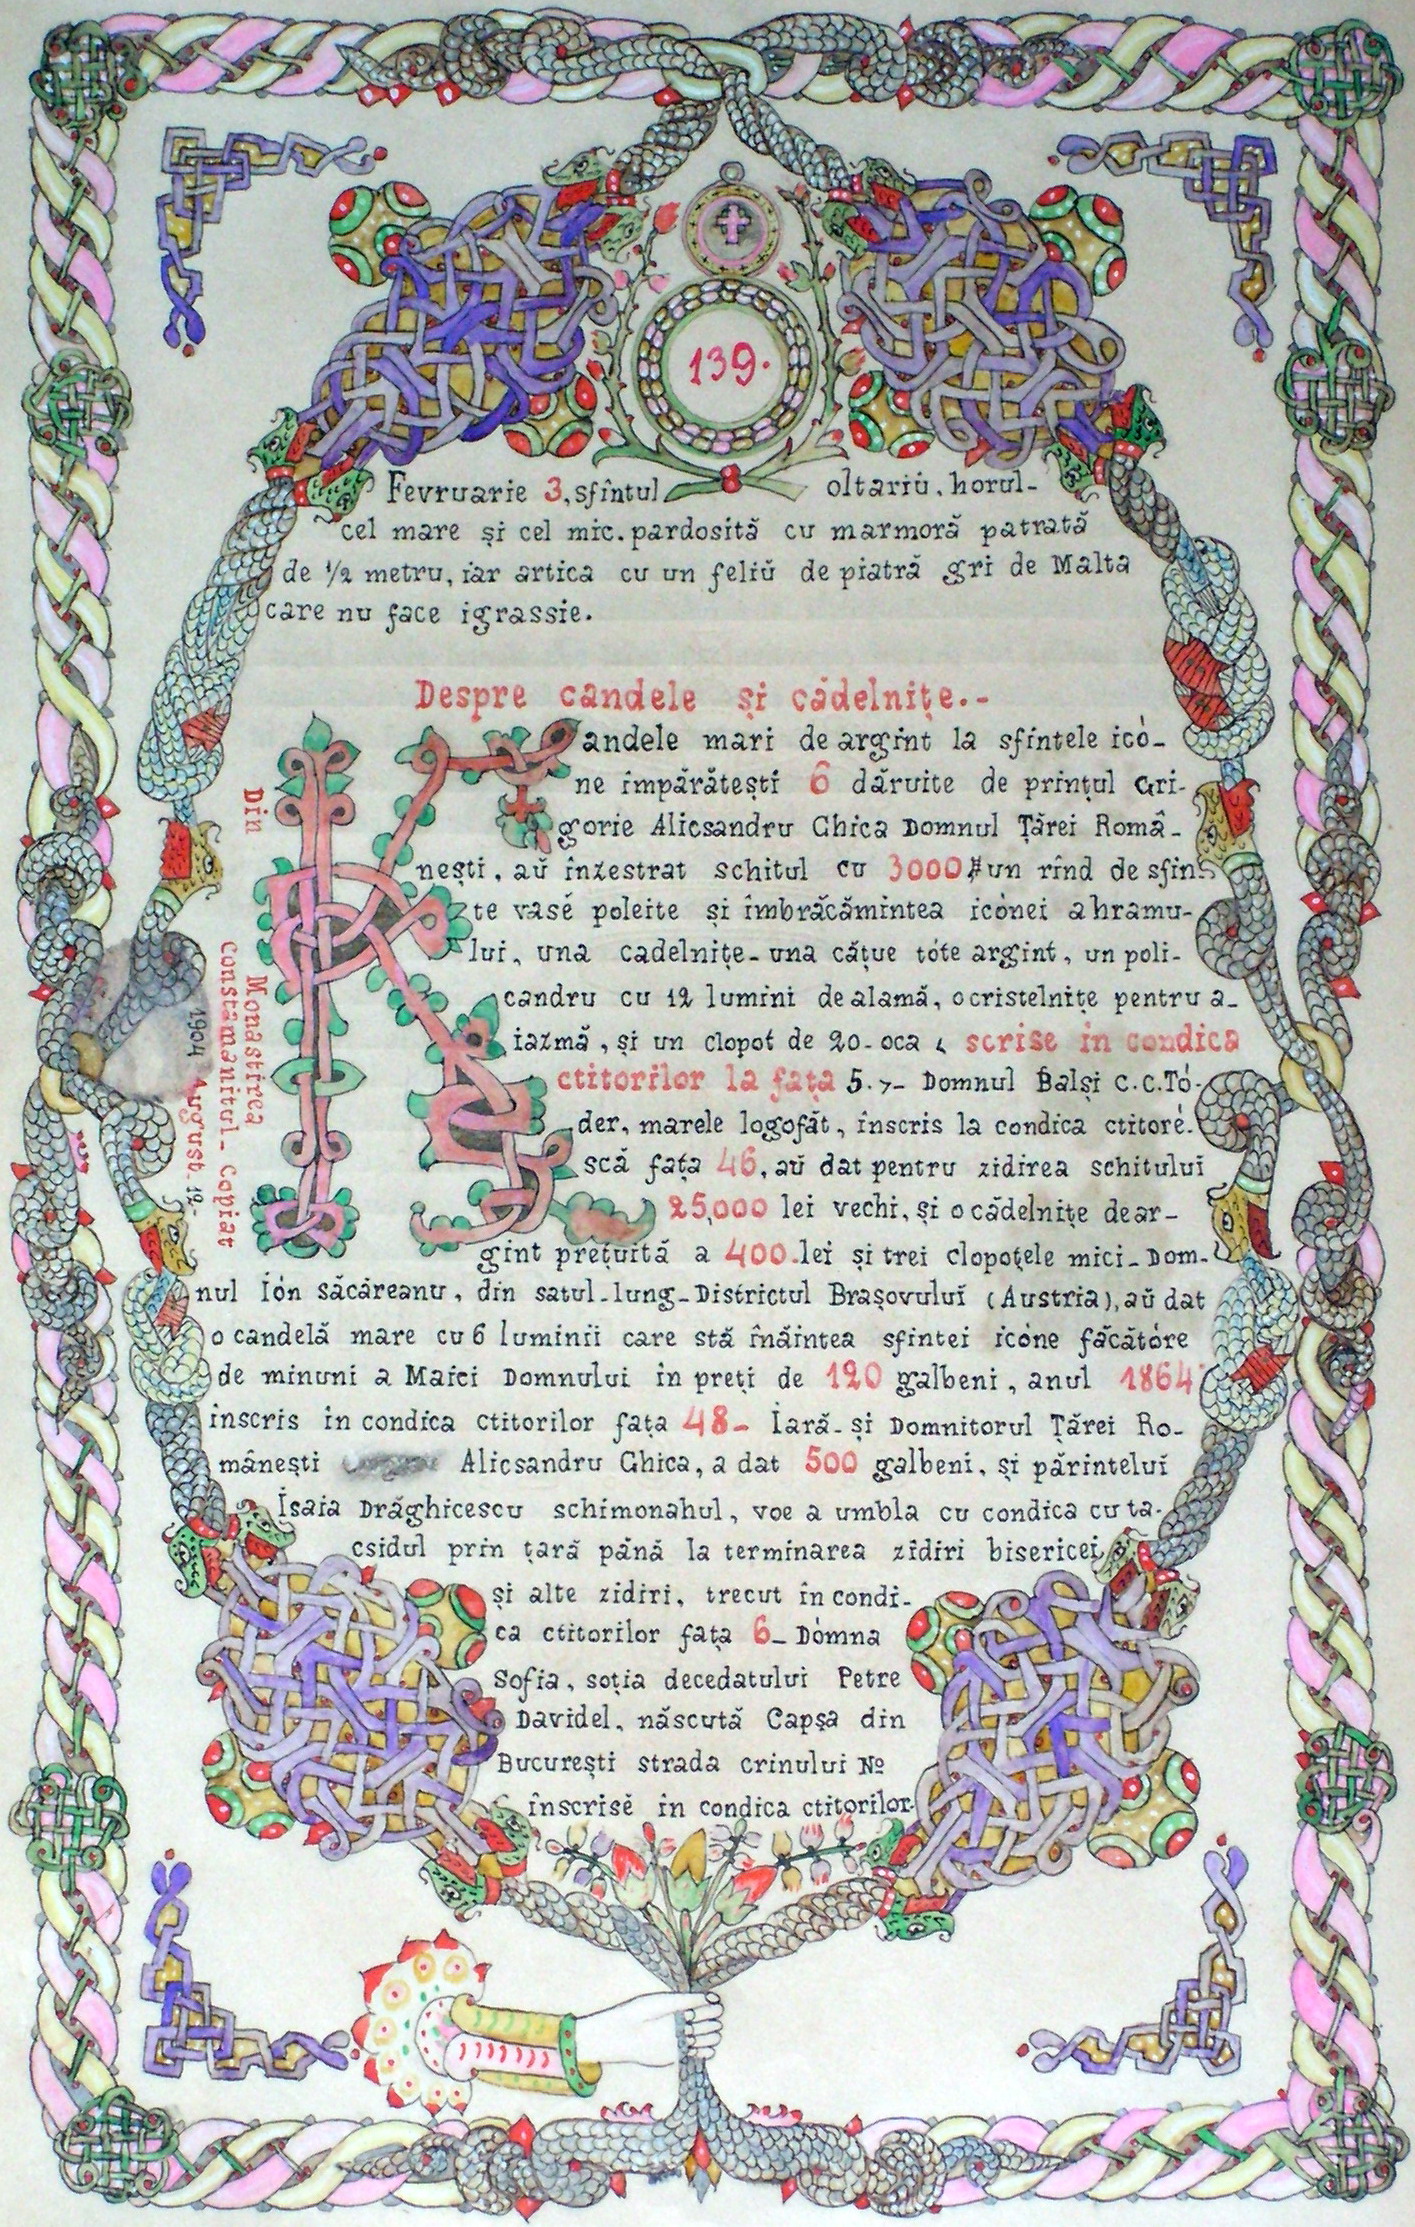 139.
Fevruarie 3, sfîntul oltariŭ, horul-
cel mare și cel mic. pardosită cu marmoră patrată
de ½ metru, iar artica cu un feliŭ de piatră gri de Malta
care nu face igrassie.
Despre candele și cădelnițe.-
Kandele mari de argint la sfintele icó-
ne împărătești 6 dăruite de prințul Gri-
gorie Alicsandru Ghica Domnul Țărei Româ-
nești, aŭ înzestrat schitul cu 3000 # un rînd de sfin-
te vasé poleite și îmbrăcămintea icónei ahramu-
lui, una cadelnițe- una cățue tóte argint, un poli-
candru cu 12 lumini de alamă, o cristelnițe pentru a-
iazmă, și un clopot de 20- oca, scrise in condica
ctitorilor la fața 5.7- Domnul Balși C.C. To-
der, marele logofăt, înscris la condica ctitoré-
scă fața 46, aŭ dat pentru zidirea schitului
25,000 lei vechi, și o cădelnițe de ar-
gint prețuită a 400. lei și trei clopoțele mici- Dom-
nul Ión săcăreanu, din satul-lung- Districtul Brașovului (Austria), aŭ dat
o candelă mare cu 6 luminii care stă înăintea sfintei icóne făcătóre
de minuni a Maici Domnului in preți de 120 galbeni, anul 1864
înscris in condica ctitorilor fața 48- Iară-și Domnitorul Țărei Ro-
mânești Alicsandru Ghica, a dat 500 galbeni, și părintelui
Isaia Drăghicescu schimonahul, voe a umbla cu condica cu ta-
csidul prin țară până la terminarea zidiri bisericei,
și alte zidiri, trecut în condi-
ca ctitorilor fața 6- Dómna
Sofia, soția decedatului Petre
Davidel, născută Capșa din
București strada crinului №
înscrisĕ in condica ctitorilor.
Din
Monastirea
constamanitul- copiat
1904 August. 12-